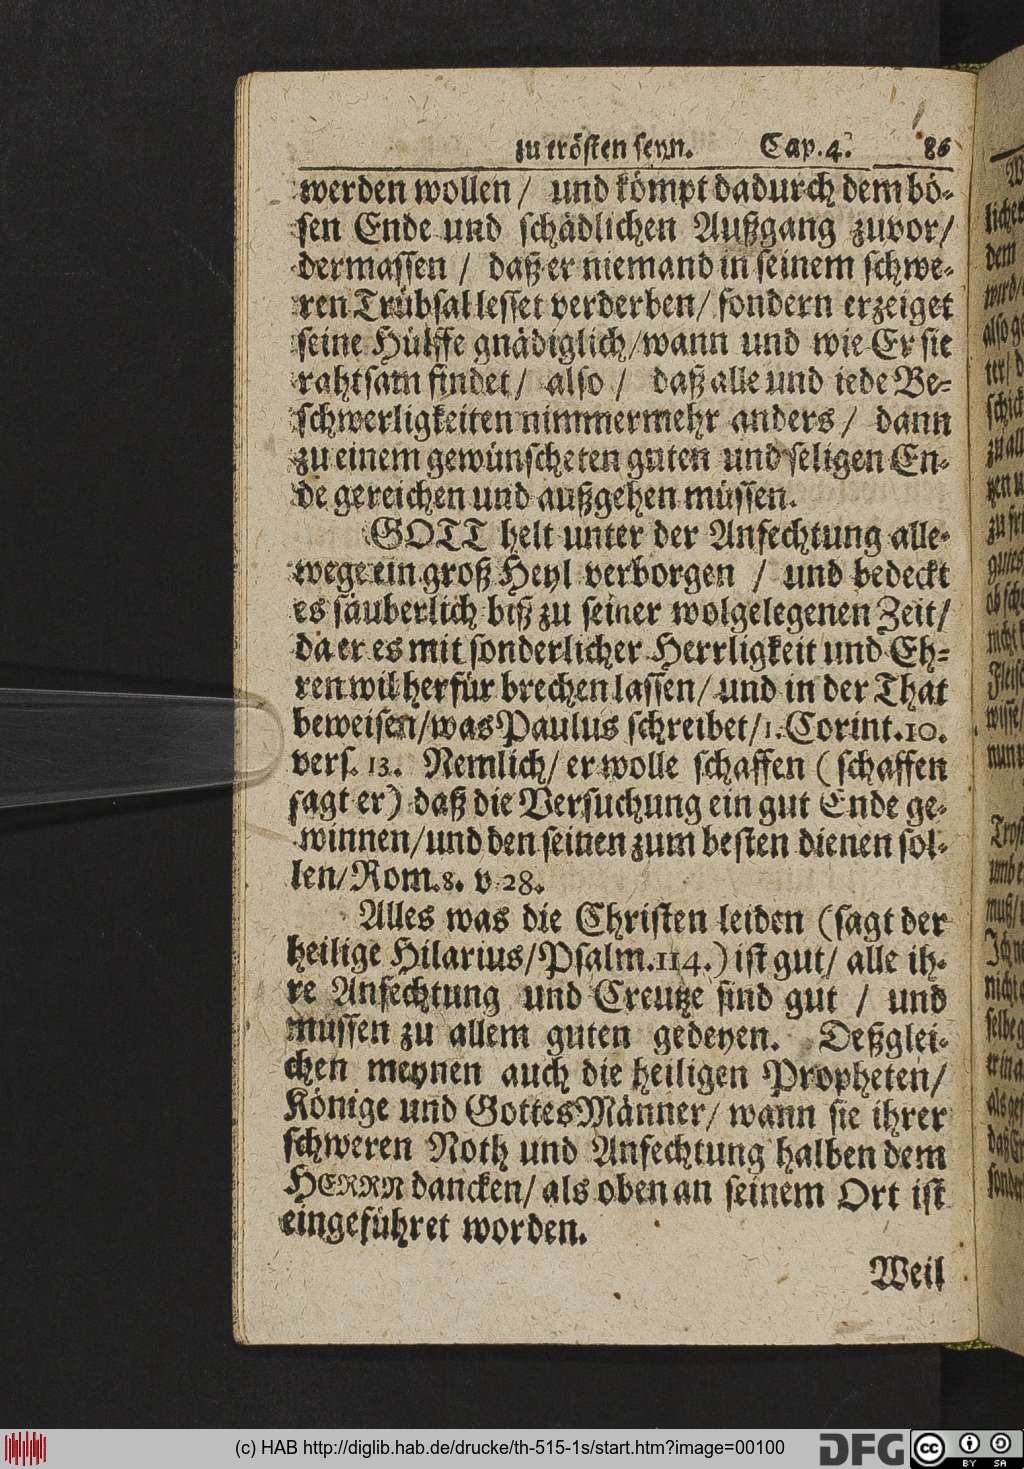 zu trösten seyn. Cap. 4. 86
werden wollen / und kömpt dadurch dem bö-
sen Ende und schädlichen Außgang zuvor/
dermassen / daß er niemand in seinem schwe-
ren Trübsal lesset verderben/ sondern erzeiget
seine Hülffe gnädiglich/wann und wie Er sie
rahtsam findet/ also / daß alle und iede Be-
schwerligkeiten nimmermehr anders / dann
zu einem gewünscheten guten und seligen En-
de gereichen und außgehen müssen.
GOTT helt unter der Anfechtung alle-
wege ein groß Heyl verborgen / und bedeckt
es säuberlich biß zu seiner wolgelegenen Zeit/
da er es mit sonderlicher Herrligkeit und Eh-
ren wil herfür brechen lassen/ und in der That
beweisen/was Paulus schreibet/1. Corint. 10.
vers. 13. Nemlich/ er wolle schaffen (schaffen
sagt er) daß die Versuchung ein gut Ende ge-
winnen/und den seinen zum besten dienen sol-
len/Rom. 8. v 28.
Alles was die Christen leiden (sagt der
heilige Hilarius/Psalm. 114.) ist gut/ alle ih-
re Anfechtung und Creutze sind gut / und
mussen zu allem guten gedeyen. Deßglei-
chen meynen auch die heiligen Propheten/
Könige und Gottes Männer/ wann sie ihrer
schweren Noth und Anfechtung halben dem
HERRN dancken/ als oben an seinem Ort ist
eingeführet worden.
Weil
(c) HAB http://diglib.hab.de/drucke/th-515-1s/start.htm?image=00100
DFG
cc BY SA